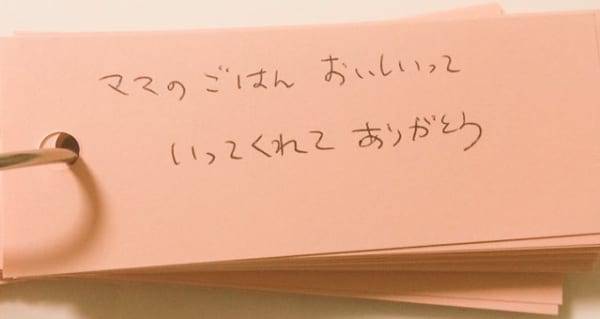 ママの ごはん おいしいって
いってくれて ありがとう